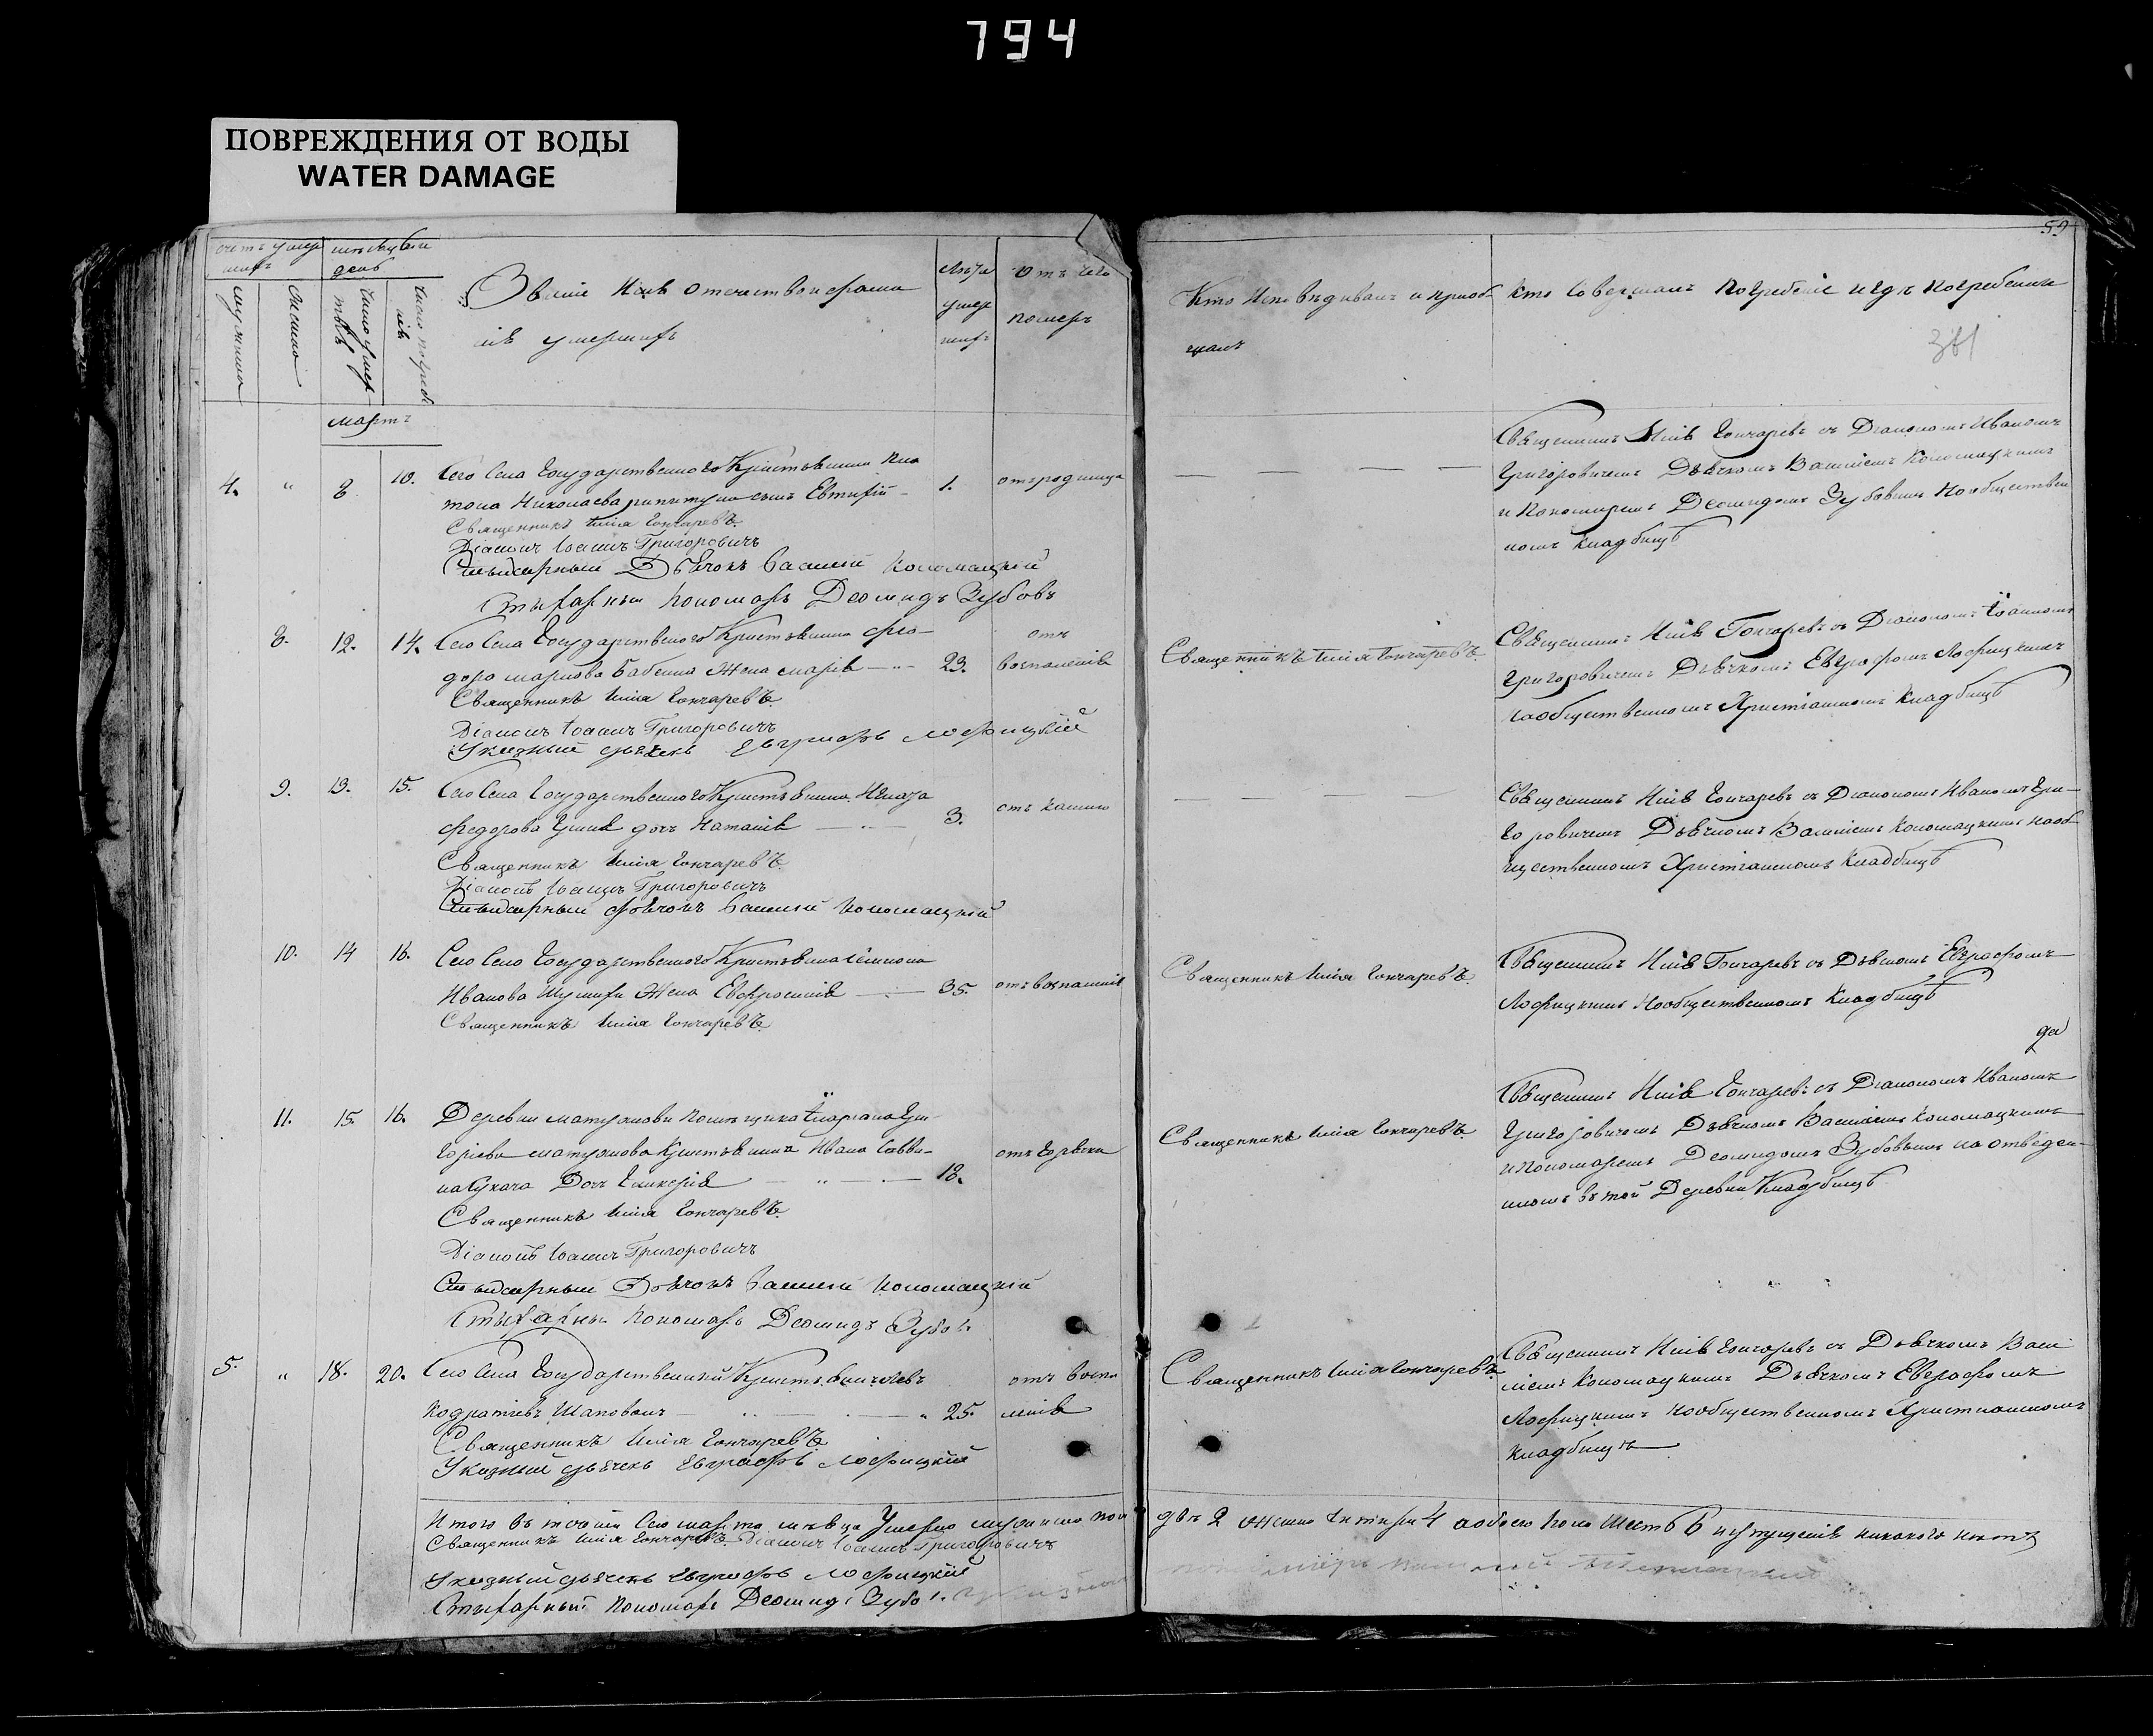 794
ПОВРЕЖДЕНИЯ ОТ ВОДЫ
WATER DAMAGE
59
Званіе Имя отечество и фами
лія умершихъ
Лѣта
умер
шихъ
Отъ чего
померъ
Кто Исповѣдивалъ и приоб
щалъ
Кто Совершалъ Погребеніе и гдѣ погребены
381
мартъ
4. " 8 10. Сего Села Государственного Крестьянина Пла
тона Николаева сынъ Евтифій 1.
Священникъ Илія Гончаревъ
Діаконъ Іоаннъ Григоровичъ
Стыхарный Дьячокъ Василій Коломацкій
Стыхарный Пономарь Деомидъ Зубовъ
Священникъ Илія Гончаревъ съ Діакономъ Иваномъ
Григоровичемъ Дьячкомъ Василіемъ Коломацкимъ
и Пономаремъ Деомидомъ Зубовымъ На обществен
номъ кладбищѣ
8. 12. 14. Сего Села Государственного Крестьянина Фео
дора Маркова Бабенка Жена Марія 23. отъ воспаленія
Священникъ Илія Гончаревъ
Діаконъ Іоаннъ Григоровичъ
Указный дьячекъ Евграфъ Лофицкій
Священникъ Илія Гончаревъ
Священникъ Илія Гончаревъ съ Діакономъ Іоанномъ
Григоровичемъ Дьячкомъ Евграфомъ Лофицкимъ
На общественномъ Христіанскомъ Кладбищѣ
9. 13. 15. Сего Села Государственного Крестьянина Игната
Федорова дочь Наталія 3. отъ кашлю
Священникъ Илія Гончаревъ
Діаконъ Іоаннъ Григоровичъ
Стыхарный Дьячокъ Василій Коломацкій
Священникъ Илія Гончаревъ съ Діакономъ Иваномъ Гри
горовичемъ Дьячкомъ Василіемъ Коломацкимъ на об
щественномъ Христіанскомъ Кладбищѣ
10. 14 16. Сего Села Государственного Крестьянина
Иванова Жена Евфросинія 35. отъ воспаленія
Священникъ Илія Гончаревъ
Священникъ Илія Гончаревъ
Священникъ Илія Гончаревъ съ Дьячкомъ Евграфомъ
Лофицкимъ На общественномъ Кладбищѣ
11. 15. 16. Деревни помѣщика Иларіона Гри
горіева Крестьянина Ивана Савви
на Сукача Дочь Гликерія 18. отъ горячки
Священникъ Илія Гончаревъ
Діаконъ Іоаннъ Григоровичъ
Стыхарный Дьячокъ Василій Коломацкій
Стыхарный Пономарь Деомидъ Зубовъ
Священникъ Илія Гончаревъ
Священникъ Илія Гончаревъ съ Діакономъ Иваномъ
Григоровичемъ Дьячкомъ Василіемъ Коломацкимъ
и Пономаремъ Деомидомъ Зубовымъ на отведен
номъ въ той Деревни Кладбищѣ
5. " 18. 20. Сего Села Государственный Крестьянинъ
Кодратіевъ Шаповалъ 25. отъ воспа
ленія
Священникъ Илія Гончаревъ
Указный дьячекъ Евграфъ Лофицкій
Священникъ Илія Гончаревъ
Священникъ Илія Гончаревъ съ Дьячкомъ Васи
ліемъ Коломацкимъ Дьячкомъ Евграфомъ
Лофицкимъ На общественномъ Христианскомъ
кладбищѣ
Итого въ теченіи Сего марта м-ца Умерло мужеска пола
два 2 женска Четыри 4 а обоего пола Шесть 6 и упущенія никакого нѣтъ
Священникъ Илія Гончаревъ Діаконъ Іоаннъ Григоровичъ
Указный дьячекъ Евграфъ Лофицкій
Стыхарный Пономарь Деомидъ Зубовъ